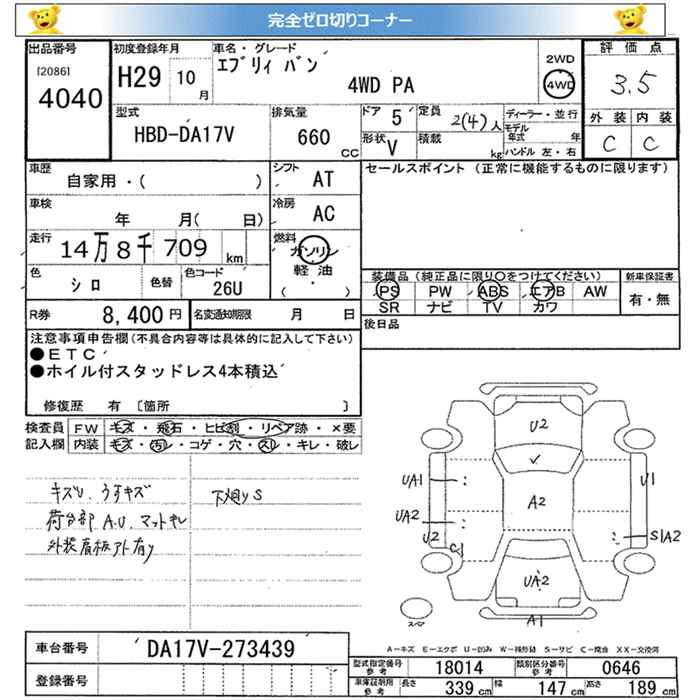 完全ゼロ切りコーナー
出品番号
[2086]
4040
初度登録年月
H29 10月
車名・グレード
エブリィ バン
4WD PA
2WD
4WD
評価点
3.5
外装 内装
C C
型式
HBD-DA17V
排気量
660 cc
ドア 5
形状 V
定員 2(4)人
積載 kg
ディーラー・並行
モデル年式 年
ハンドル 左・右
車歴
自家用・( )
シフト
AT
セールスポイント (正常に機能するものに限ります)
車検
年 月( 日)
冷房
AC
走行
14万8千709 km
燃料
ガソリン
軽油
・( )
色
シロ
色替
色コード
26U
装備品 (純正品に限り○をつけてください)
PS PW ABS エアB AW
SR ナビ TV カワ
新車保証書
有・無
R券 8,400円
名変通知期限 月 日
後日品
注意事項申告欄(不具合内容等は具体的に記入して下さい)
●ETC
●ホイル付スタッドレス4本積込
修復歴 有 [箇所 ]
検査員
記入欄
FW キズ・飛石・ヒビ割・リペア跡・×要
内装 キズ・汚レ・コゲ・穴・スレ・キレ・破レ
キズU、うすキズ
荷台部 A.U、マットキレ
下廻りS
U2
A2
UA1
UA2
U2
C1
U1
S1A2
UA2
A1
スペア
A－キズ E－エクボ U－凹み W－補修跡 S－サビ C－腐食 XX－交換済
車台番号 DA17V-273439
登録番号
型式指定番号 参考 18014
類別区分番号 参考 0646
車庫証明用 参考
長さ 339 cm
幅 147 cm
高さ 189 cm